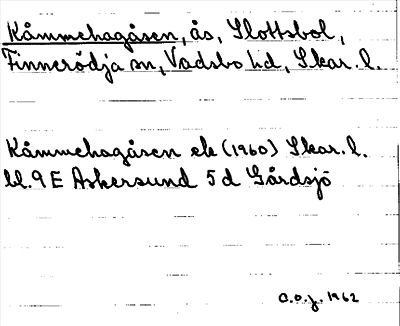 Kåmmehagåsen, ås, Slottsbol,
Finnerödja sn, Vadsbo hd, Skar. l.
Kåmmehagåsen ek (1960) Skar. l.
bl. 9 E Askersund 5 d Gårdsjö
a.o.j. 1962